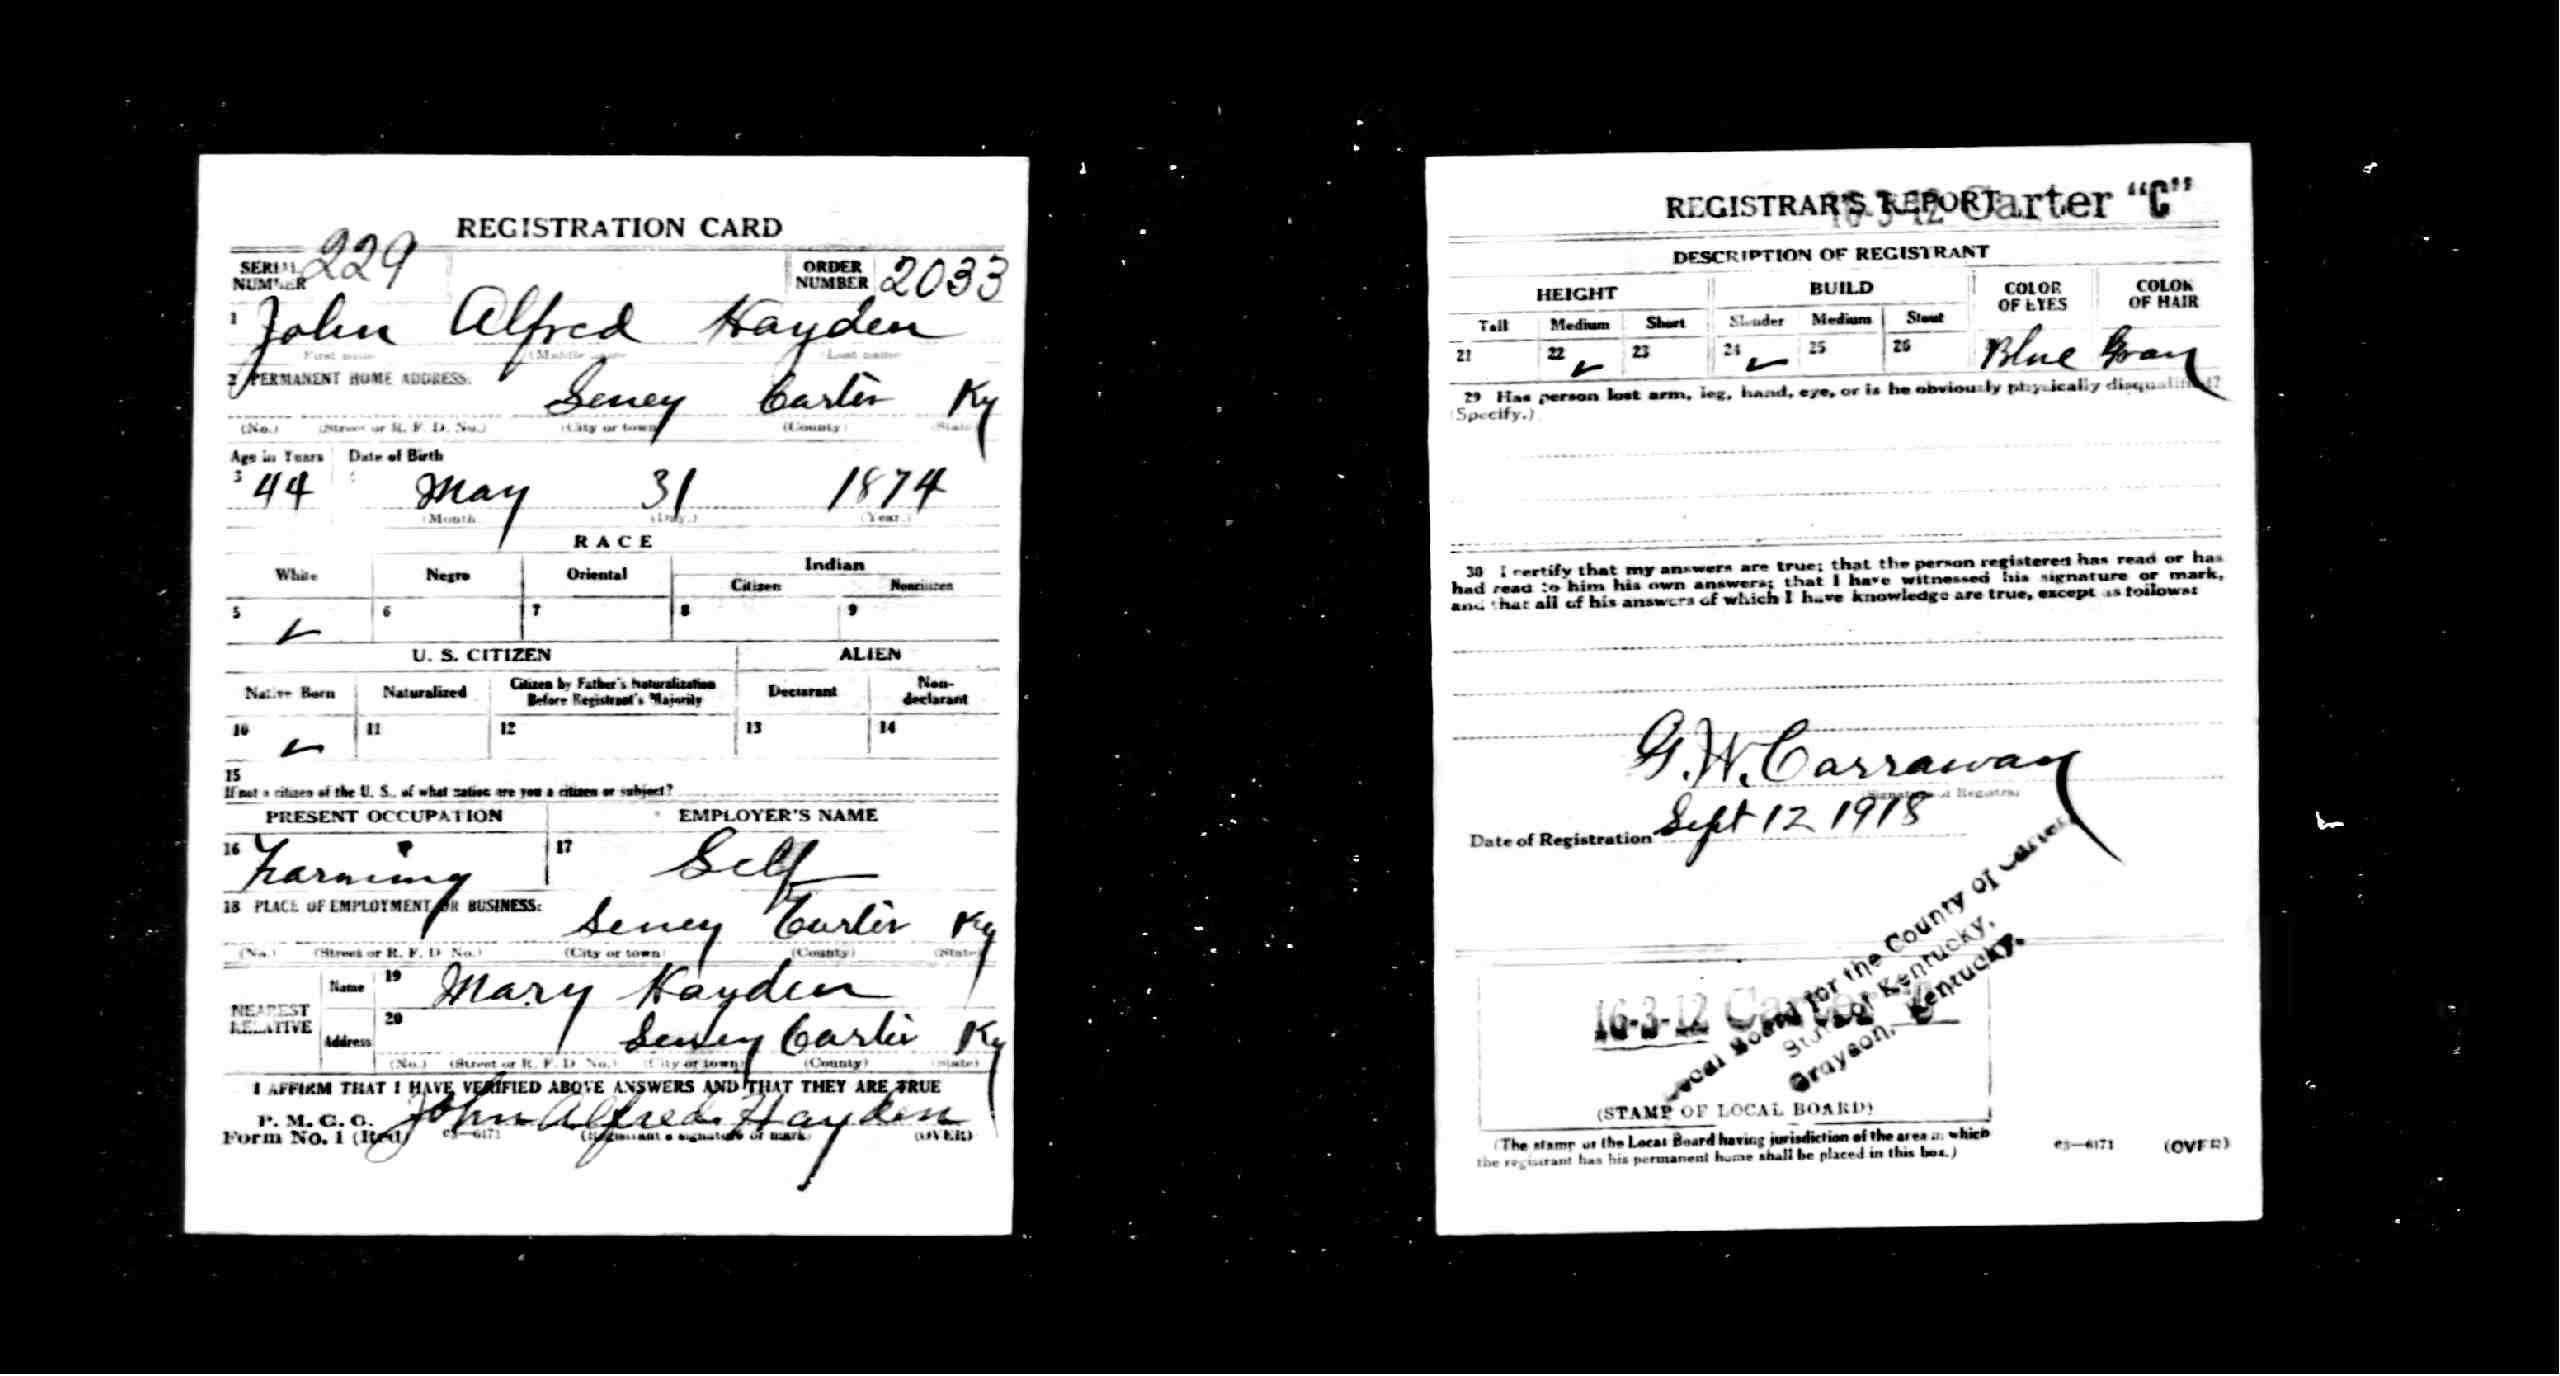 REGISTRATION CARD
SERIAL NUMBER 229 ORDER NUMBER 2033
1 John Alfred Hayden
First name (Middle name Last name
2 PERMANENT HOME ADDRESS:
Seney Carter Ky
(No.) (Street or R. F. D. No.) (City or town) (County) (State)
Age in Years Date of Birth
3 44 May 31 1874
(Month (Day.) (Year.)
RACE
White Negro Oriental Indian
Citizen Noncitizen
5 ✓ 6 7 8 9
U. S. CITIZEN ALIEN
Native Born Naturalized Citizen by Father's Naturalization Before Registrant's Majority Declarant Non-declarant
10 ✓ 11 12 13 14
15
If not a citizen of the U. S., of what nation are you a citizen or subject?
PRESENT OCCUPATION EMPLOYER'S NAME
16 Farming 17 Self
18 PLACE OF EMPLOYMENT OR BUSINESS:
Seney Carter Ky
(No.) (Street or R. F. D. No.) (City or town) (County) (State)
NEAREST RELATIVE
Name 19 Mary Hayden
Address 20 Seney Carter Ky
(No.) (Street or R. F. D. No.) (City or town) (County) (State)
I AFFIRM THAT I HAVE VERIFIED ABOVE ANSWERS AND THAT THEY ARE TRUE
P. M. G. O.
Form No. 1 (Red) 03—6171 John Alfred Hayden
(Registrant's signature or mark) (OVER)
REGISTRAR'S REPORT
16-3-12 Carter "C"
DESCRIPTION OF REGISTRANT
HEIGHT BUILD COLOR OF EYES COLOR OF HAIR
Tall Medium Short Slender Medium Stout
21 22 ✓ 23 24 ✓ 25 26 Blue Gray
29 Has person lost arm, leg, hand, eye, or is he obviously physically disqualified?
(Specify.)
30 I certify that my answers are true; that the person registered has read or has
had read to him his own answers; that I have witnessed his signature or mark,
and that all of his answers of which I have knowledge are true, except as follows:
G. W. Carraway
(Signature of Registrar
Date of Registration Sept 12 1918
Local Board for the County of Carter,
State of Kentucky,
Grayson, Kentucky.
16-3-12 Carter "C"
(STAMP OF LOCAL BOARD)
(The stamp of the Local Board having jurisdiction of the area in which
the registrant has his permanent home shall be placed in this box.)
03—6171 (OVER)